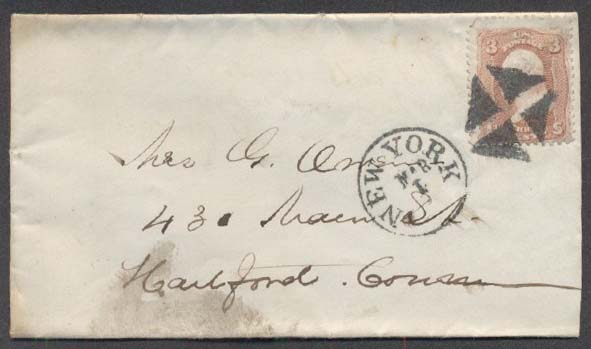 3 3
U.S.
POSTAGE
S
NEW YORK
MAR
6
Mrs G. Owen
430 Main St.
Hartford. Conn